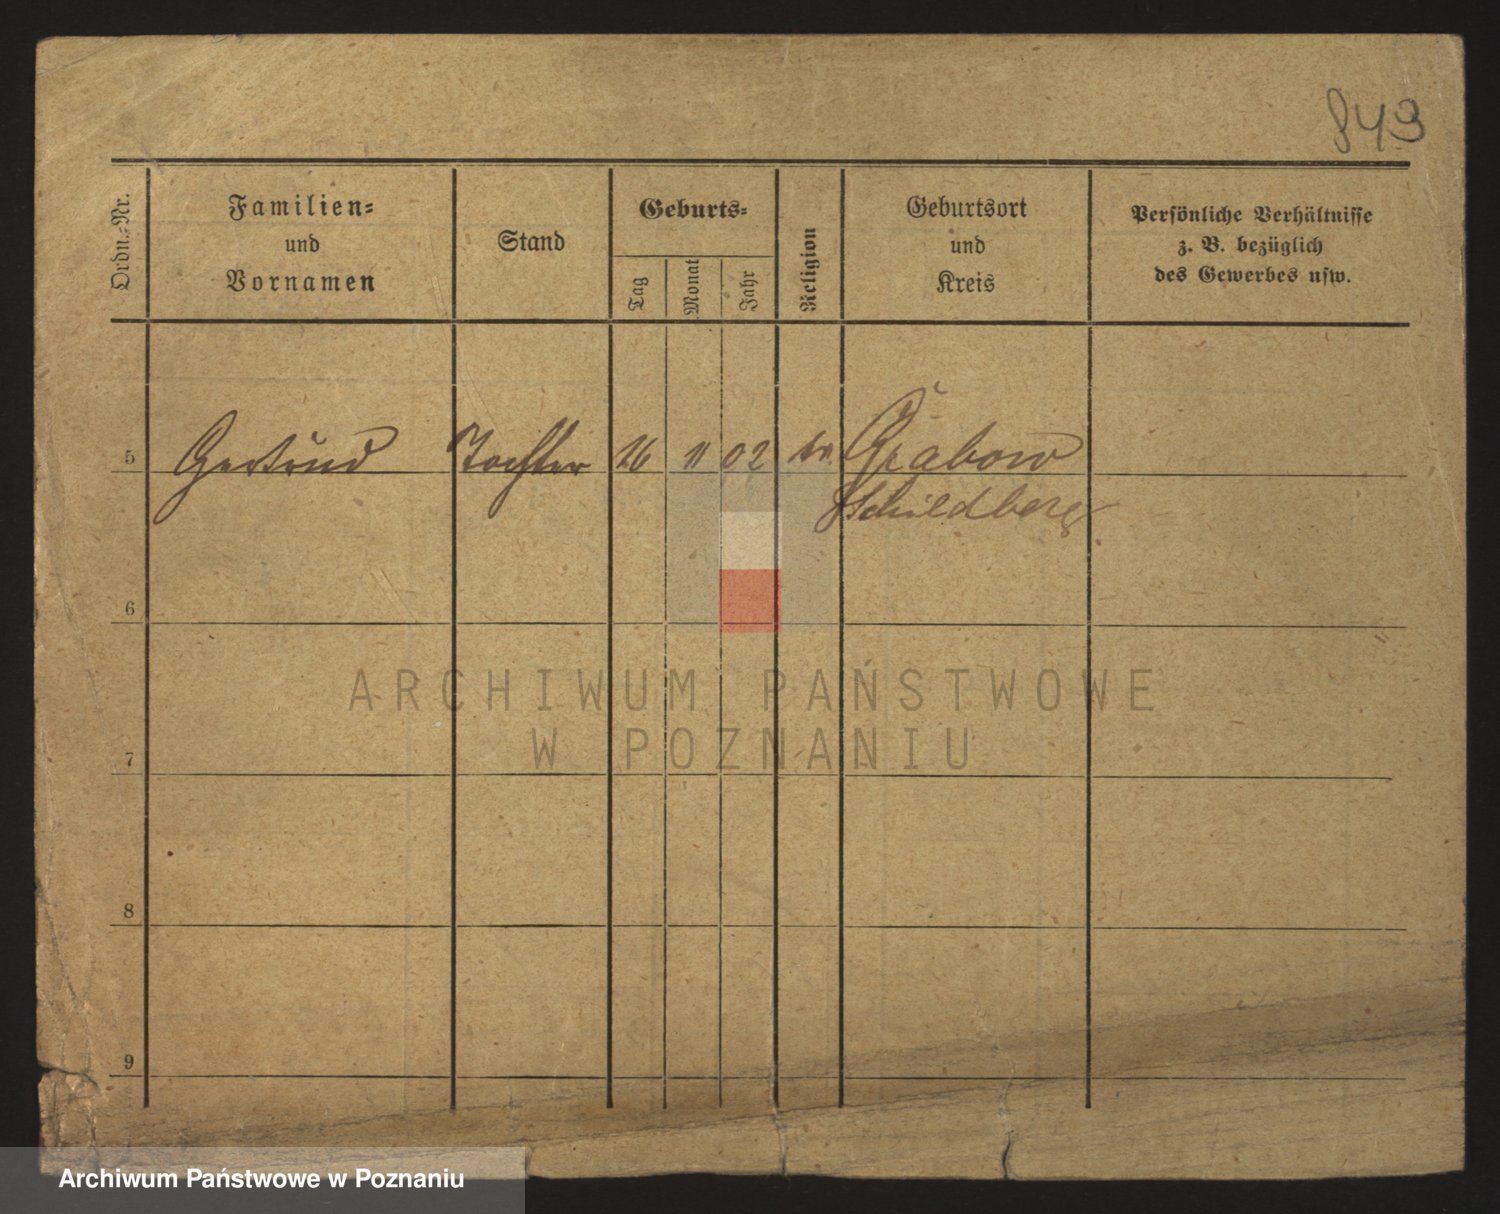 843
Ordn.-Nr.
Familien-
und
Vornamen
Stand
Geburts-
Tag
Monat
Jahr
Religion
Geburtsort
und
Kreis
Persönliche Verhältnisse
z. B. bezüglich
des Gewerbes usw.
5 Gertrud Tochter 26 11 02 Grabow
Schildberg
6
7
8
9
ARCHIWUM PAŃSTWOWE
W POZNANIU
Archiwum Państwowe w Poznaniu